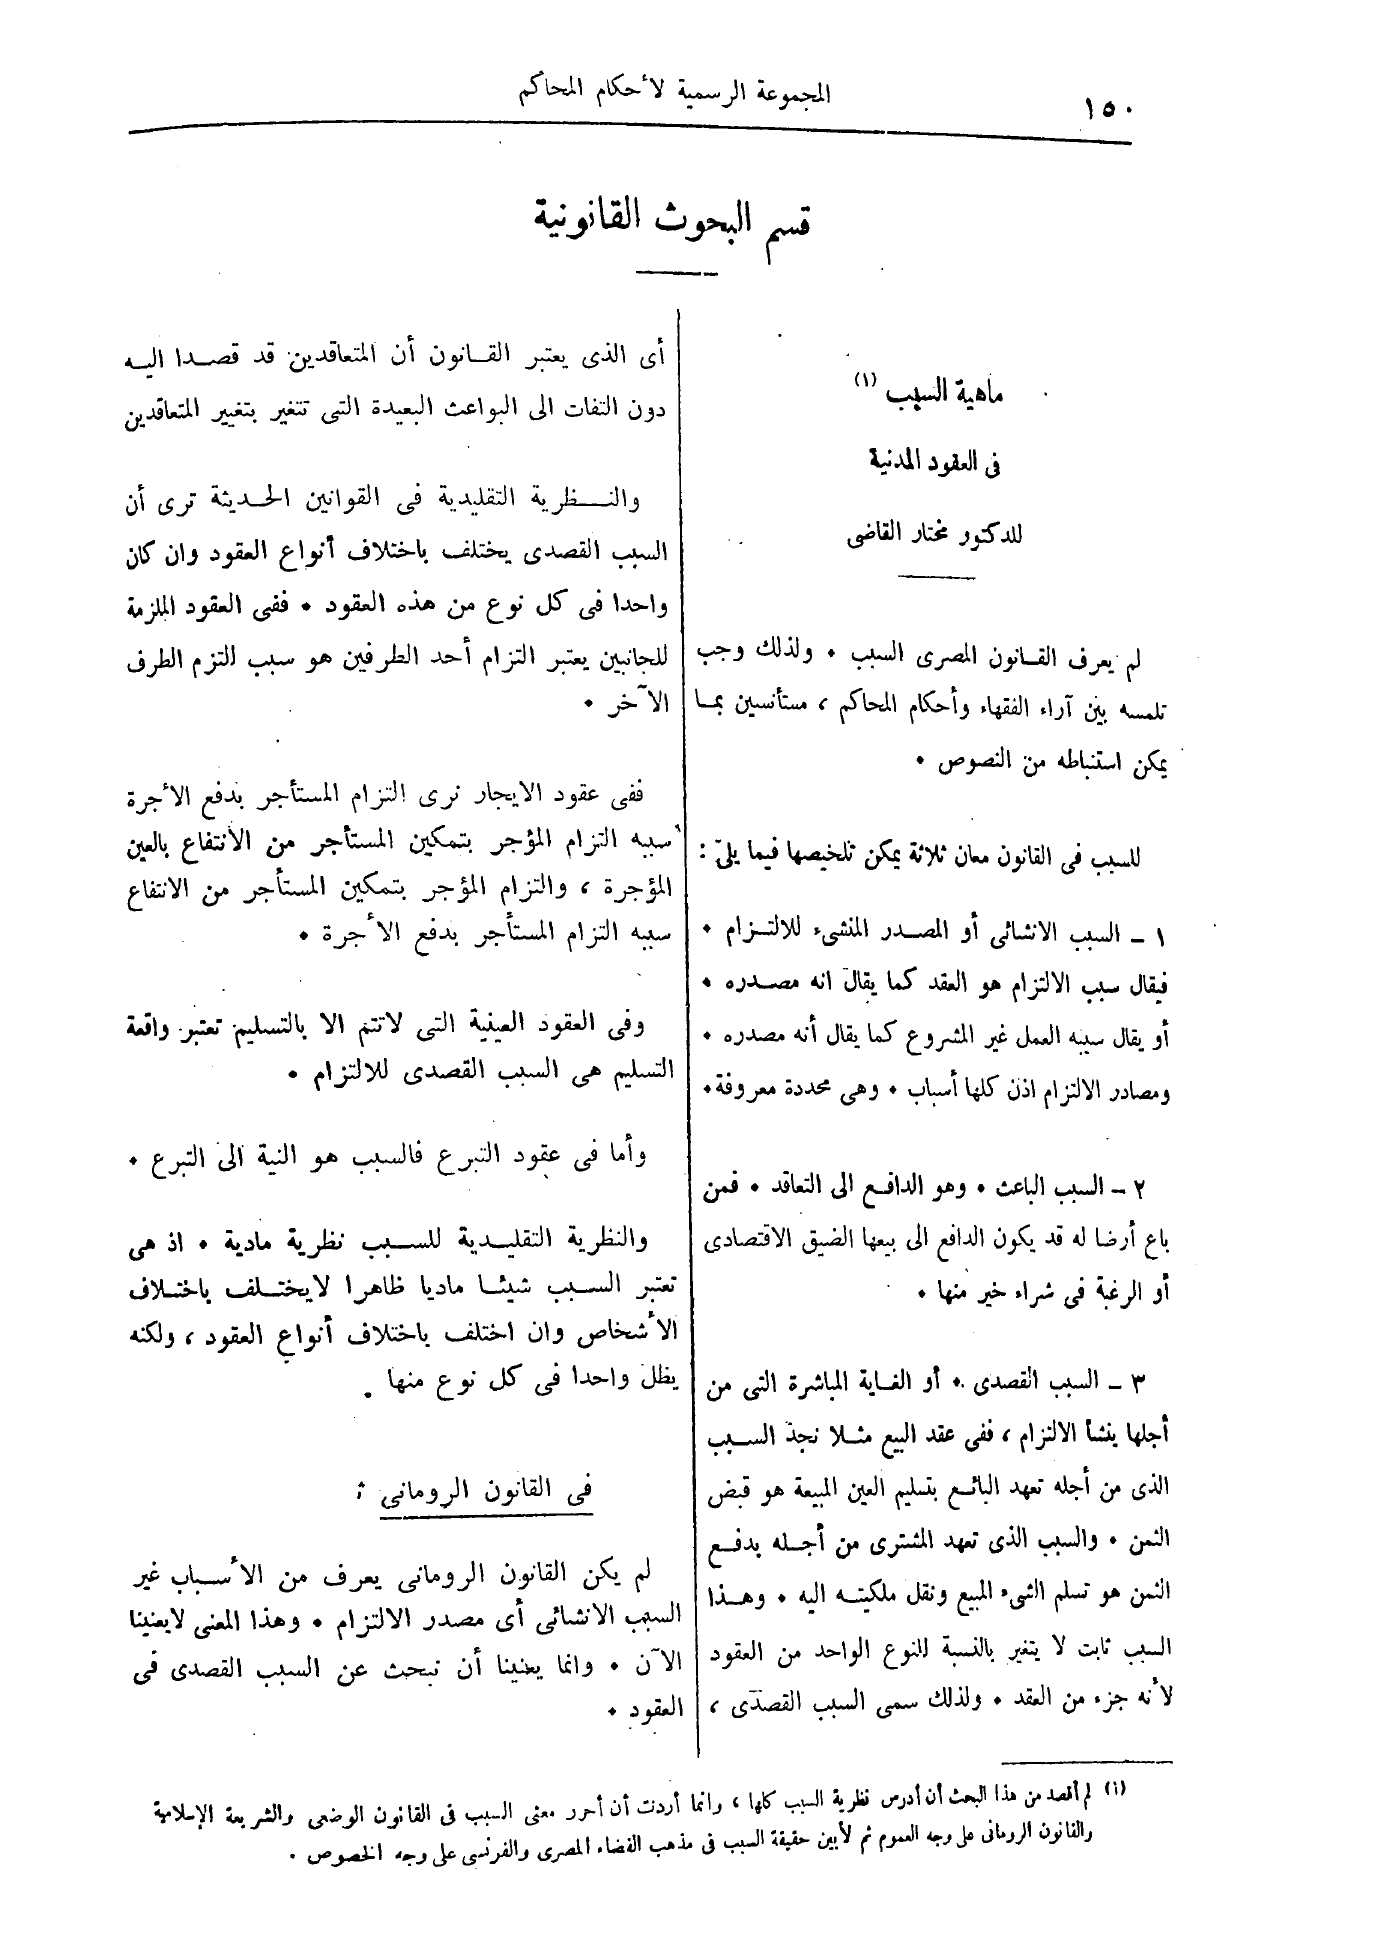 ١٥٠
المجموعة الرسمية لأحكام المحاكم
قسم البحوث القانونية
ماهية السبب (١)
فى العقود المدنية
للدكتور مختار القاضى
لم يعرف القانون المصرى السبب • ولذلك وجب
تلمسه بين آراء الفقهاء وأحكام المحاكم ، مستأنسين بما
يمكن استنباطه من النصوص •
للسبب فى القانون معان ثلاثة يمكن تلخيصها فيما يلى :
١ ـ السبب الانشائى أو المصدر المنشىء للالتزام •
فيقال سبب الالتزام هو العقد كما يقال انه مصدره •
أو يقال سببه العمل غير المشروع كما يقال أنه مصدره •
ومصادر الالتزام اذن كلها أسباب • وهى محددة معروفة •
٢ ـ السبب الباعث • وهو الدافع الى التعاقد • فمن
باع أرضا له قد يكون الدافع الى بيعها الضيق الاقتصادى
أو الرغبة فى شراء خير منها •
٣ ـ السبب القصدى • أو الغاية المباشرة التى من
أجلها ينشأ الالتزام ، ففى عقد البيع مثلا نجد السبب
الذى من أجله تعهد البائع بتسليم العين المبيعة هو قبض
الثمن • والسبب الذى تعهد المشترى من أجله بدفع
الثمن هو تسلم الشىء المبيع ونقل ملكيته اليه • وهذا
السبب ثابت لا يتغير بالنسبة للنوع الواحد من العقود
لأنه جزء من العقد • ولذلك سمى السبب القصدى ،
أى الذى يعتبر القانون أن المتعاقدين قد قصدا اليه
دون التفات الى البواعث البعيدة التى تتغير بتغيير المتعاقدين
والنظرية التقليدية فى القوانين الحديثة ترى أن
السبب القصدى يختلف باختلاف أنواع العقود وان كان
واحدا فى كل نوع من هذه العقود • ففى العقود الملزمة
للجانبين يعتبر التزام أحد الطرفين هو سبب التزم الطرف
الآخر •
ففى عقود الايجار نرى التزام المستأجر بدفع الأجرة
سببه التزام المؤجر بتمكين المستأجر من الانتفاع بالعين
المؤجرة ، والتزام المؤجر بتمكين المستأجر من الانتفاع
سببه التزام المستأجر بدفع الأجرة •
وفى العقود العينية التى لاتتم الا بالتسليم تعتبر واقعة
التسليم هى السبب القصدى للالتزام •
وأما فى عقود التبرع فالسبب هو النية الى التبرع •
والنظرية التقليدية للسبب نظرية مادية • اذ هى
تعتبر السبب شيئا ماديا ظاهرا لايختلف باختلاف
الأشخاص وان اختلف باختلاف أنواع العقود ، ولكنه
يظل واحدا فى كل نوع منها .
فى القانون الرومانى :
لم يكن القانون الرومانى يعرف من الأسباب غير
السبب الانشائى أى مصدر الالتزام • وهذا المعنى لايعنينا
الآن • وانما يعنينا أن نبحث عن السبب القصدى فى
العقود •
(١) لم أقصد من هذا البحث أن أدرس نظرية السبب كلها ، وانما أردت أن أحرر معنى السبب فى القانون الوضعى والشريعة الإسلامية
والقانون الرومانى على وجه العموم ثم لأبين حقيقة السبب فى مذهب القضاء المصرى والفرنسى على وجه الخصوص .